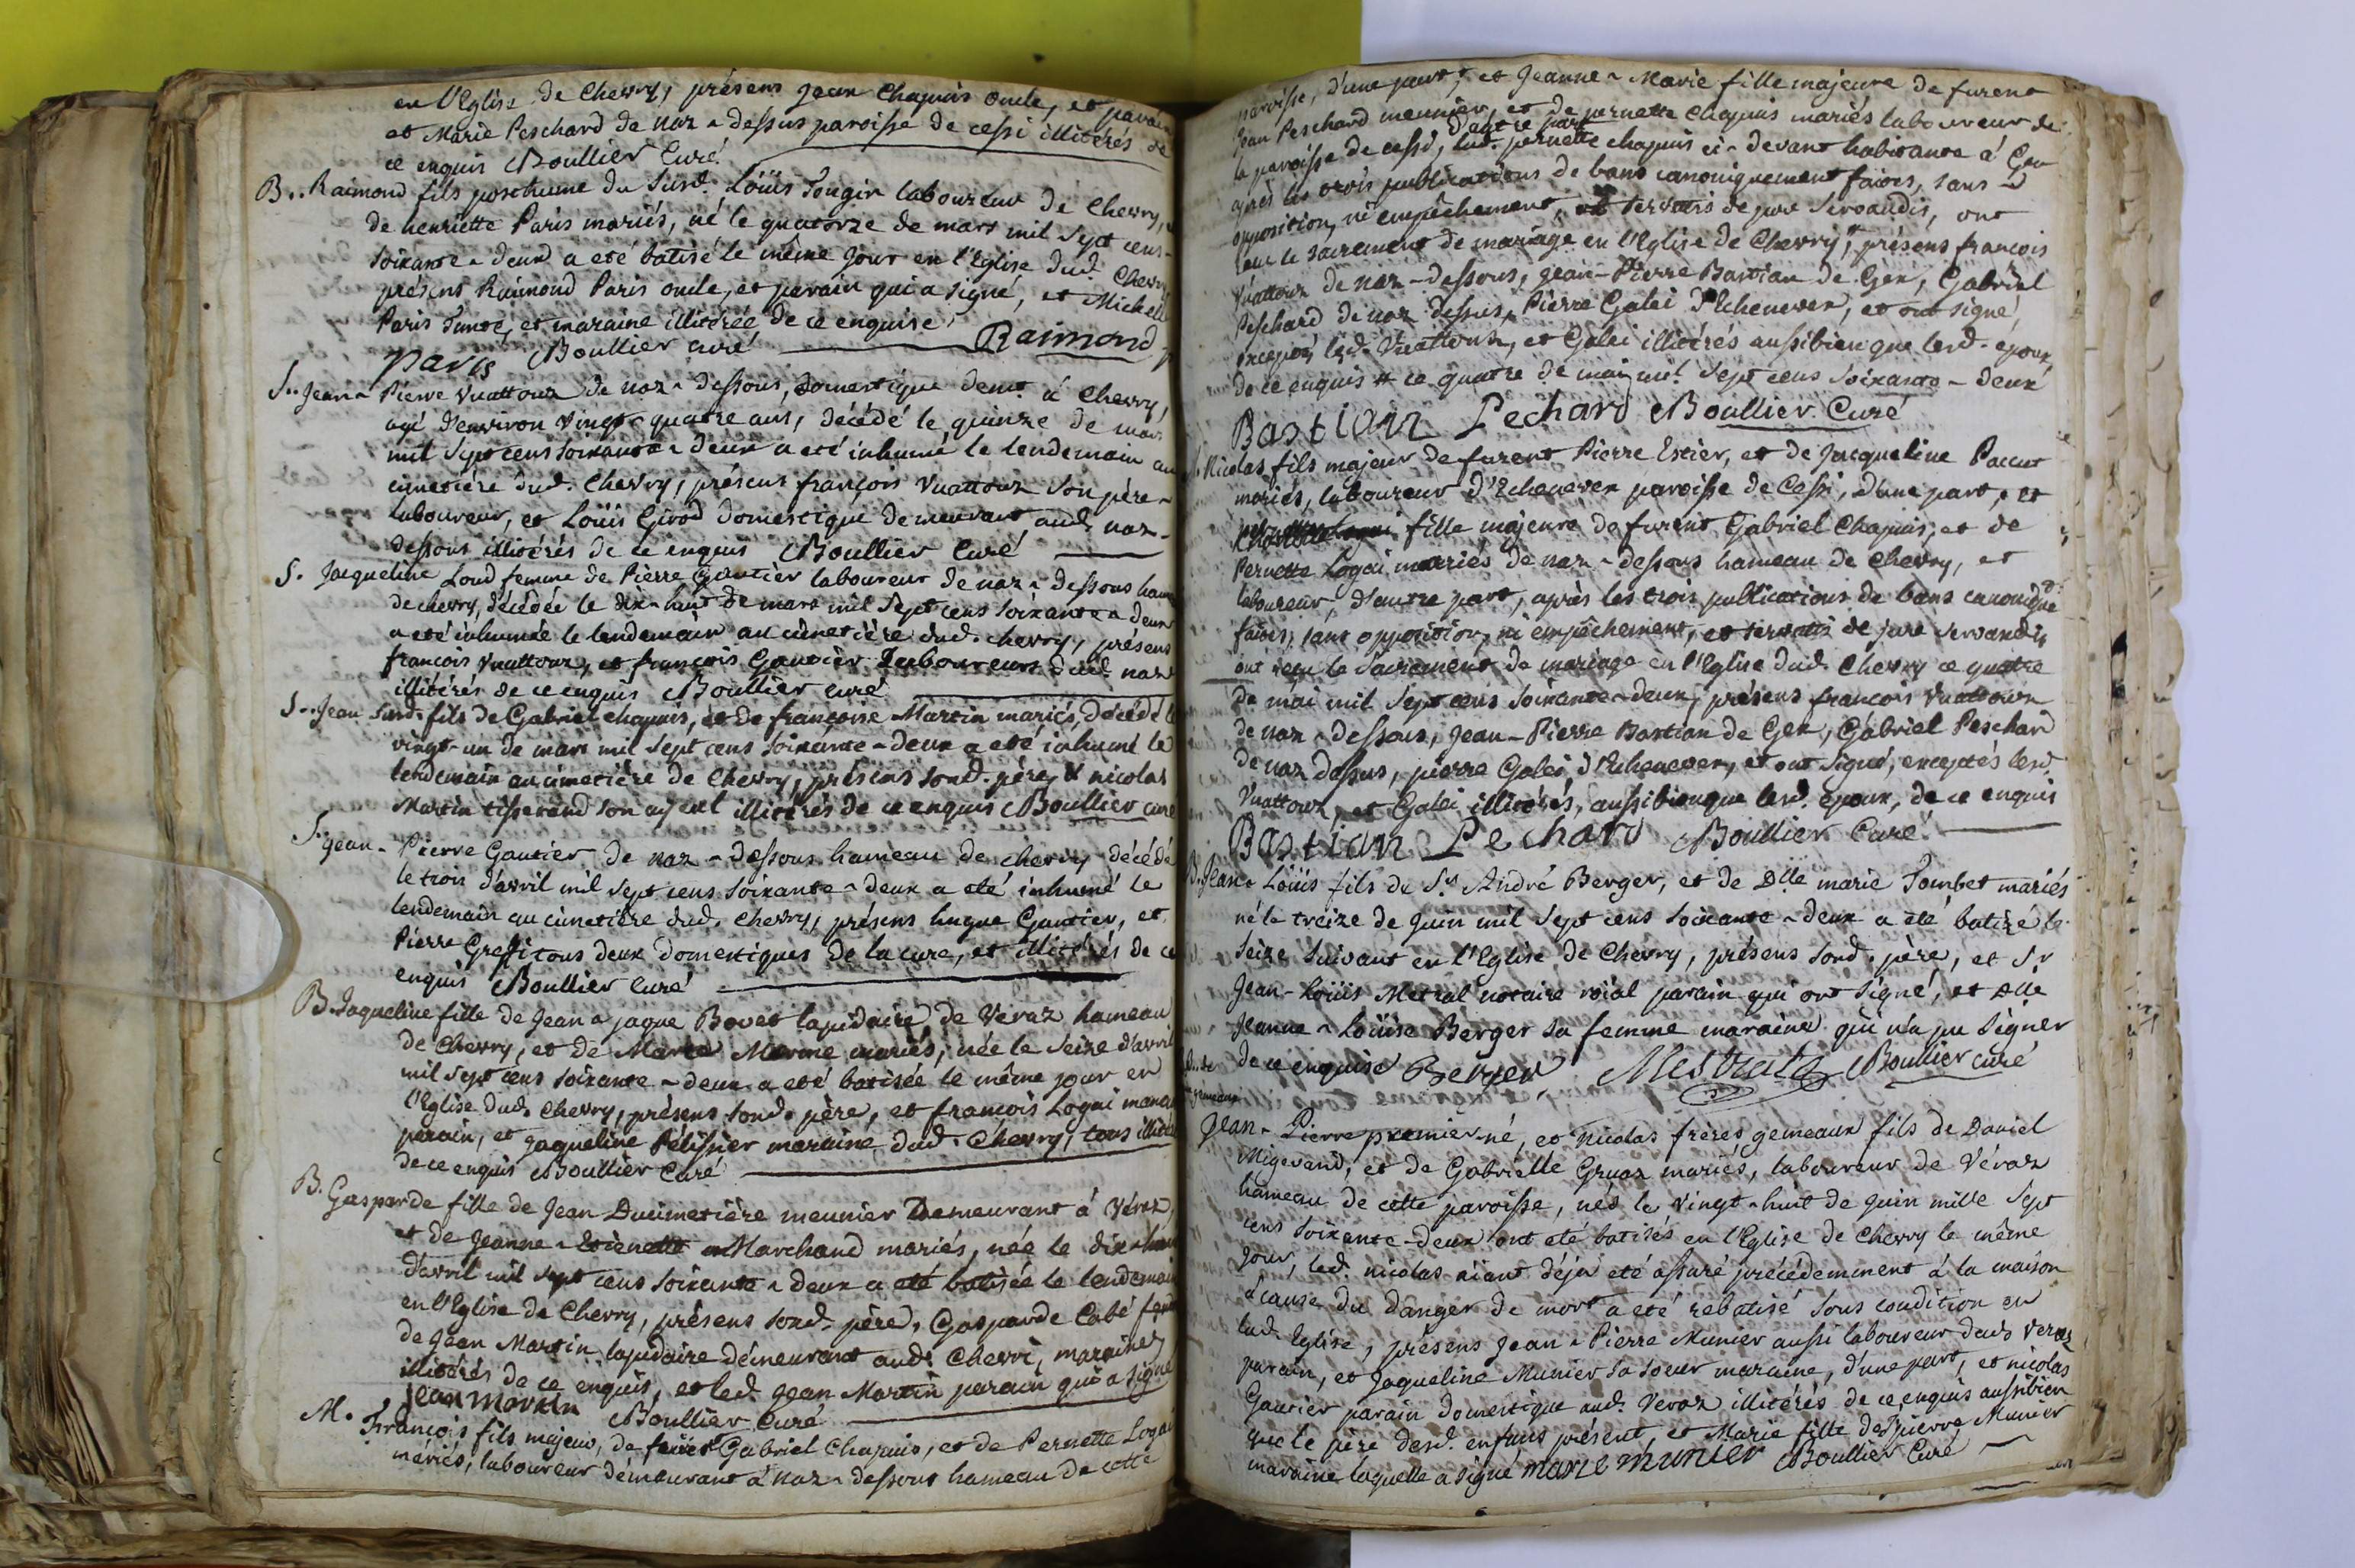 en l'Eglise de Chevry, présens Jean Chapuis oncle, et parain
et Marie Peschard de naz-dessus paroisse de cessi illitérés de
ce enquis Boullier Curé
B.. Raimond fils posthume du Susd. Loüis Tougin laboureur de Chevry,
de henriette Paris mariés, né le quatorze de mars mil Sept cens-
Soixante-deux a eté batisé le même Jour en l'Eglise dud. Chevry
présens Raimond Paris oncle, et parain qui a signé, et Michelle
Paris Tante, et maraine illitérée de ce enquise Raimond
paris Boullier curé
S.. Jean-Pierre Vuattoux de naz-dessous, domestique demt. à Chevry,
agé d'environ vingt-quatre ans, décédé le quinze de mars
mil Sept cens soixante-deux a eté inhumé le lendemain au
cimetiére dud. Chevry, présens françois Vuattoux son pére-
laboureur, et Loüis Girod domestique demeurant aud. naz-
dessous illitérés de ce enquis Boullier Curé
S. Jacqueline Loud femme de Pierre Gautier laboureur de naz-dessous hameau
de chevry, décédée le dix-huit de mars mil Sept cens soixante-deux
a eté inhumée le lendemain au cimetière dud. chevry, présens
françois Vuattoux, et françois Gautier Laboureurs dud. naz
illitérés de ce enquis Boullier curé
S.. Jean Susd. fils de Gabriel chapuis, et de françoise Martin mariés, décédé le
vingt-un de mars mil sept cens Soixante-deux a eté inhumé le
lendemain au cimetière de Chevry, présens sond. père, & nicolas
Martin tisserand son ayeul illitérés de ce enquis Boullier curé
S.. Jean-Pierre Gautier de naz-dessous hameau de chevry décédé
le trois d'avril mil sept cens soixante-deux a eté inhumé le
lendemain au cimetière dud. Chevry, présens hugue Gautier, et
Pierre tous deux domestiques de la cure, et illitérés de ce
enquis Boullier Curé
B. Jaqueline fille de Jean-jaque Bovet lapidaire de Véraz hameau
de Chevry, et de Marie mariés, née le Seize d'avril
mil sept cens soixante-deux a eté batisée le même jour en
l'Eglise dud. Chevry, présens sond. père, et françois Logai
parain, et jaqueline Pélissier maraine dud. Chevry, tous
de ce enquis Boullier Curé
B. Gasparde fille de Jean Ducimetière meunier Demeurant à Véraz
et de Jeanne-Etiennette Marchand mariés, née le dix-huit
d'avril mil sept cens soixante-deux a eté batisée le lendemain
en l'Eglise de Chevry, présens sond. père, Gasparde Cabé
de Jean Martin lapidaire demeurant aud. Chevri, maraine
illitérés de ce enquis, et led. Jean Martin parain qui a signé
Jean martin Boullier Curé
M. François fils majeur, de Gabriel Chapuis, et de Pernette Logai
mariés, laboureur demeurant à naz-dessous hameau de cette
paroisse, d'une part, et Jeanne-Marie fille majeure de furent
Jean Peschard meunier, et de pernette Chapuis mariés laboureur de
d'autre part
la paroisse de cessi, lad. pernette chapuis ci-devant habitante à
après les trois publications de bans canoniquement faites, sans
opposition, ni empêchement, et servatis de jure Servandis, ont
reçu le sacrement de mariage en l'Eglise de Chevry, présens françois
Vuattoux de naz-dessous, Jean-Pierre Bastian de Gex, Gabriel
Peschard de naz dessus, Pierre Galei d'Echenevex, et ont signé,
exceptés led. Vuattoux, et Galei illitérés aussibien que lesd. epoux
de ce enquis # ce quatre de mai mil sept cens Soixante-deux
Bastian Pechard Boullier Curé
Nicolas fils majeur de furent Pierre Estier, et de Jacqueline Paccut
mariés, laboureur d'Echenevex paroisse de Cessi, d'une part, et
fille majeure de furent Gabriel Chapuis, et de
Pernette Logai mariés de naz-dessous hameau de Chevry, et
laboureur, d'autre part, après les trois publications de bans canoniqt.
faites, sans opposition, ni empêchement, et servatis de jure servandis
ont reçu le Sacrement de mariage en l'Eglise dud. Chevry ce quatre
de mai mil Sept cens Soixante-deux, présens francois Vuattoux
de naz-dessous, Jean-Pierre Bastian de Gex, Gabriel Peschard
de naz dessus, pierre Galei d'Echenevex, et ont signé, exceptés lesd.
Vuattoux, et Galei illitérés, aussibienque lesd. epoux, de ce enquis
Bastian Pechard Boullier Curé
Jean-Loüis fils de Sr. André Berger, et de Dlle marie Tombet mariés
né le treize de Juin mil Sept cens Soixante-deux a eté batizé le
Seize Suivant en l'Eglise de Chevry, présens Sond. père, et Sr
Jean-Loüis Metral notaire roïal parain qui ont signé, et Dlle
Jeanne-Loüise Berger sa femme maraine qui n'a pu signer
de ce enquise Berger Mestral Boullier curé
gemeaux
Jean-Pierre premier né, et Nicolas frères gemeaux fils de Daniel
Migevand, et de Gabrielle Gruaz mariés, laboureur de Véraz
hameau de cette paroisse, nés le vingt-huit de Juin mille Sept
cens Soixante-deux ont eté batisés en l'Eglise de Chevry le même
Jour, led. nicolas aiant déja eté assuré précédemment à la maison
à cause du danger de mort a eté rebatisé sous condition en
lad. Eglise, présens Jean-Pierre Munier aussi laboureur dud. Veraz
parain, et Jaqueline Munier sa soeur maraine, d'une part, et nicolas
Gautier parain domestique aud. Veraz illitérés de ce enquis aussibien
que le père desd. enfans présent, et Marie fille de pierre Munier
maraine laquelle a signé marie munier Boullier Curé